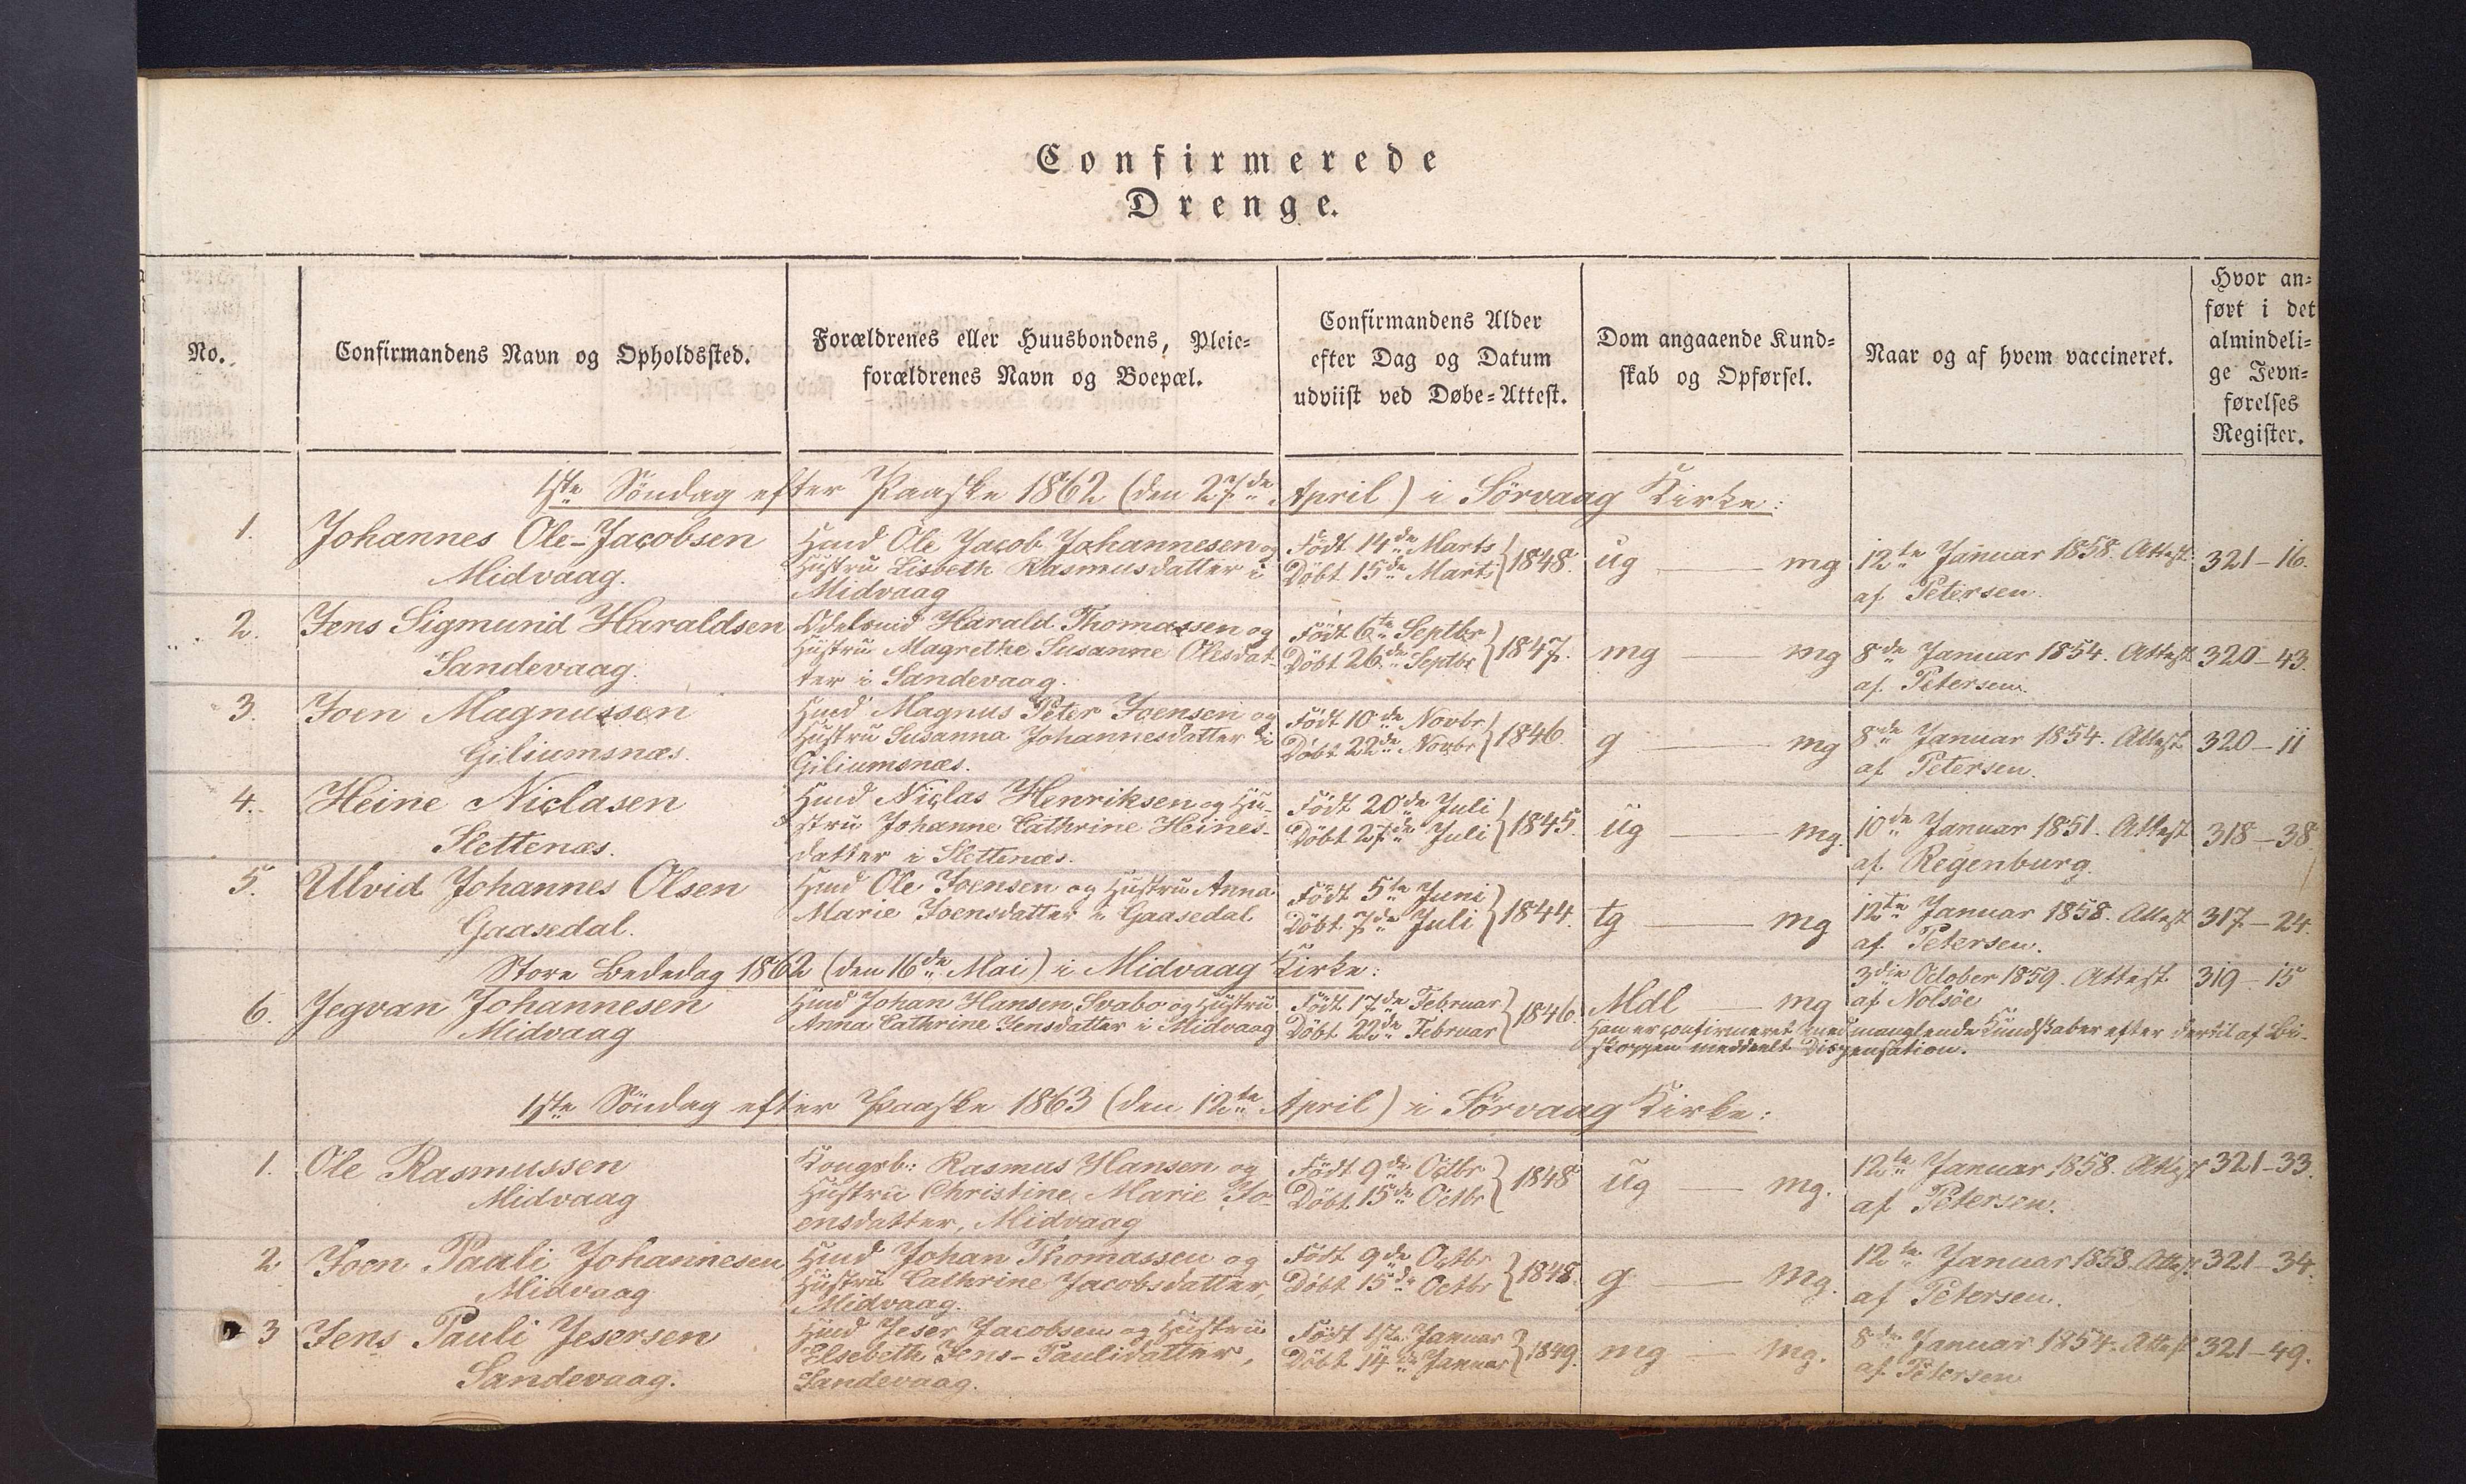 Confirmerede
Drenge.
No.
Confirmandens Navn og Opholdssted.
Forældrenes eller Huusbondens, Pleie-
forældrenes Navn og Boepæl.
Confirmandens Alder
efter Dag og Datum
udviist ved Døbe-Attest.
Dom angaaende Kund-
skab og Opførsel.
Naar og af hvem vaccineret.
Hvor an-
ført i det
almindeli-
ge Jevn-
førelses
Register.
1ste Söndag efter Paaske 1862 (den 27de April) i Sörvaag Kirke:
1.
Johannes Ole-Jacobsen
Midvaag.
Hmd Ole Jacob Johannesen og
Hustru Lisbeth Rasmusdatter i
Midvaag
Födt 14de Marts
Döbt 15de Marts } 1848.
ug — mg
12te Januar 1858. Attest
af Petersen.
321–16.
2.
Jens Sigmund Haraldsen
Sandevaag.
Odelsmd Harald Thomassen og
Hustru Magrethe Susanne Olesdat-
ter i Sandevaag.
Födt 6te Septbr
Döbt 26de Septbr } 1847.
mg — mg
8de Januar 1854. Attest
af Petersen.
320–43.
3.
Joen Magnussen
Giliumsnæs.
Hmd Magnus Peter Joensen og
Hustru Susanna Johannesdatter i
Giliumsnæs.
Födt 10de Novbr
Döbt 22de Novbr } 1846.
g — mg
8de Januar 1854. Attest
af Petersen.
320–11
4.
Heine Niclasen
Slettenæs.
Hmd Niclas Henriksen og Hu-
stru Johanne Cathrine Heines-
datter i Slettenæs.
Födt 20de Juli
Döbt 27de Juli } 1845.
ug — mg.
10de Januar 1851. Attest
af Regenburg.
318–38.
5.
Ulvid Johannes Olsen
Gaasedal.
Hmd Ole Joensen og Hustru Anna
Marie Joensdatter i Gaasedal
Födt 5te Juni
Döbt 7de Juli } 1844.
tg — mg
12te Januar 1858. Attest
af Petersen.
317–24.
Store Bededag 1862 (den 16de Mai) i Midvaag Kirke:
6.
Jegvan Johannesen
Midvaag
Hmd Johan Hansen Svabo og Hustru
Anna Cathrine Jensdatter i Midvaag
Födt 17de Februar
Döbt 22de Februar } 1846.
Mdl — mg
3die October 1859. Attest
af Nolsöe
319–15
Han er confirmeret med manglende Kundskaber efter dertil af Bi-
skoppen meddeelt Dispensation.
1ste Söndag efter Paaske 1863 (den 12te April) i Sörvaag Kirke:
1.
Ole Rasmussen
Midvaag
Kongsb: Rasmus Hansen og
Hustru Christine Marie Jo-
ensdatter, Midvaag
Födt 9de Octbr
Döbt 15de Octbr } 1848
ug — mg.
12te Januar 1858. Attest
af Petersen.
321–33.
2
Joen Pauli Johannesen
Midvaag
Hmd Johan Thomassen og
Hustru Cathrine Jacobsdatter,
Midvaag.
Födt 9de Octbr
Döbt 15de Octbr } 1848.
g — mg.
12te Januar 1858. Attest
af Petersen.
321–34.
3
Jens Pauli Jesersen
Sandevaag.
Hmd Jeser Jacobsen og Hustru
Elsebeth Jens-Paulidatter,
Sandevaag.
Födt 1ste Januar
Döbt 14de Januar } 1849.
mg — mg.
8de Januar 1854. Attest
af Petersen
321–49.